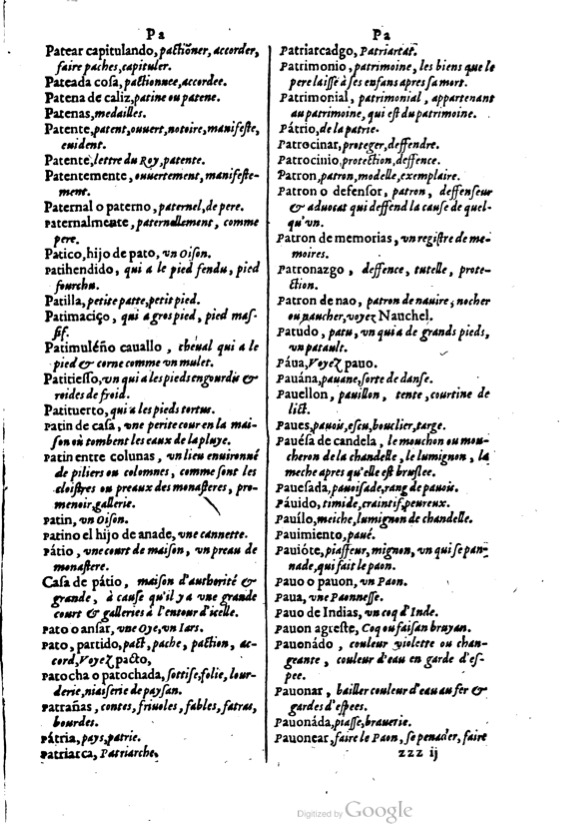 Pa
Patear capitulando, pactiōner, accorder,
faire paches, capituler.
Pateada cosa, pactionnee, accordee.
Patena de caliz, patine ou patene.
Patenas, medailles.
Patente, patent, ouuert, notoire, manifeste,
euident.
Patente, lettre du Roy, patente.
Patentemente, ouuertement, manifeste-
ment.
Paternal o paterno, paternel, de pere.
Paternalmente, paternellement, comme
pere.
Patico, hijo de pato, vn Oison.
Patihendido, qui a le pied fendu, pied
fourchu.
Patilla, petite patte, petit pied.
Patimaciço, qui a gros pied, pied mas-
sif.
Patimuléño cauallo, cheual qui a le
pied & corne comme un mulet.
Patitiesso, vn qui a les pieds engourdis &
roides de froid.
Patituerto, qui a les pieds tortus.
Patin de casa, vne petite cour en la mai-
son où tombent les eaux de la pluye.
Patin entre colunas, vn lieu enuironné
de piliers ou colomnes, comme sont les
cloistres ou preaux des monasteres, pro-
menoir, gallerie.
Patin, vn Oison.
Patino el hijo de anade, vne cannette.
Pátio, vne court de maison, vn preau de
monastere.
Casa de pátio, maison d'authorité &
grande, à cause qu'il y a vne grande
court & galleries à l'entour d'icelle.
Pato o ansar, vne Oye, vn Iars.
Pato, partido, pact, pache, paction, ac-
cord, Voyez pacto,
Patocha o patochada, sottise, folie, lour-
derie, niaiserie de paysan.
Patrañas, contes, friuoles, fables, fatras,
bourdes.
Pátria, pays, patrie.
Patriarca, Patriarche.
Pa
Patriarcadgo, Patriarcat.
Patrimonio, patrimoine, les biens que le
pere laisse à ses enfans apres sa mort.
Patrimonial, patrimonial, appartenant
au patrimoine, qui est du patrimoine.
Pátrio, de la patrie.
Patrocinar, proteger, deffendre.
Patrocinio, protection, deffence.
Patron, patron, modelle, exemplaire.
Patron o defensor, patron, deffenseur
& aduocat qui deffend la cause de quel-
qu'vn.
Patron de memorias, vn registre de me-
moires.
Patronazgo, deffence, tutelle, prote-
ction.
Patron de nao, patron de nauire, nocher
ou naucher, voyez Nauchel.
Patudo, patu, vn qui a de grands pieds,
vn patault.
Páua, Voyez pauo.
Pauána, pauane, sorte de danse.
Pauellon, pauillon, tente, courtine de
lict.
Paues, pauois, escu, bouclier, targe.
Pauésa de candela, le mouchon ou mou-
cheron de la chandelle, le lumignon, la
meche apres qu'elle est bruslee.
Pauesada, pauoisade, rang de pauois.
Páuido, timide, craintif, peureux.
Pauílo, meiche, lumignon de chandelle.
Pauimiento, paué.
Pauióte, piaffeur, mignon, vn qui se pan-
nade, qui fait le paon.
Pauo o pauon, vn Paon.
Paua, vne Paonnesse.
Pauo de Indias, vn coq d'Inde.
Pauon agreste, Coq ou faisan bruyan.
Pauonádo, couleur violette ou chan-
geante, couleur d'eau en garde d'es-
pee.
Pauonar, bailler couleur d'eau au fer &
gardes d'espees.
Pauonáda, piaffe, brauerie.
Pauonear, faire le Paon, se penader, faire
zzz ij
Digitized by Google